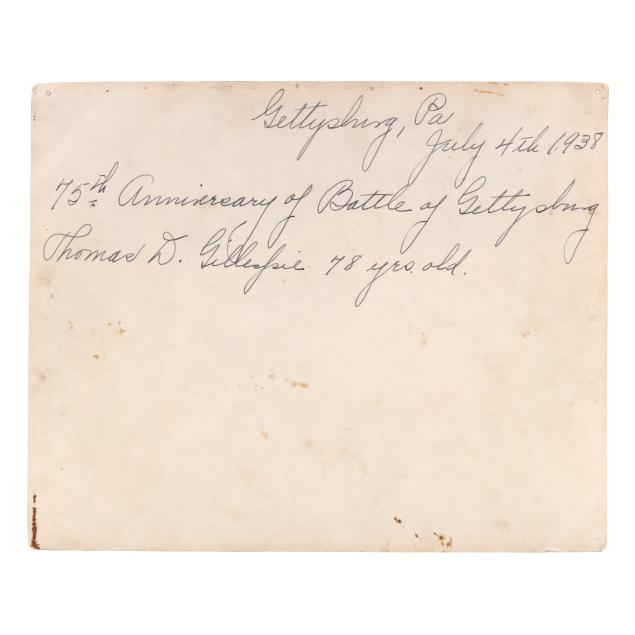 Gettysburg, Pa
July 4th 1938
75th Anniversary of Battle of Gettysburg
Thomas D. Gillespie 78 yrs. old.